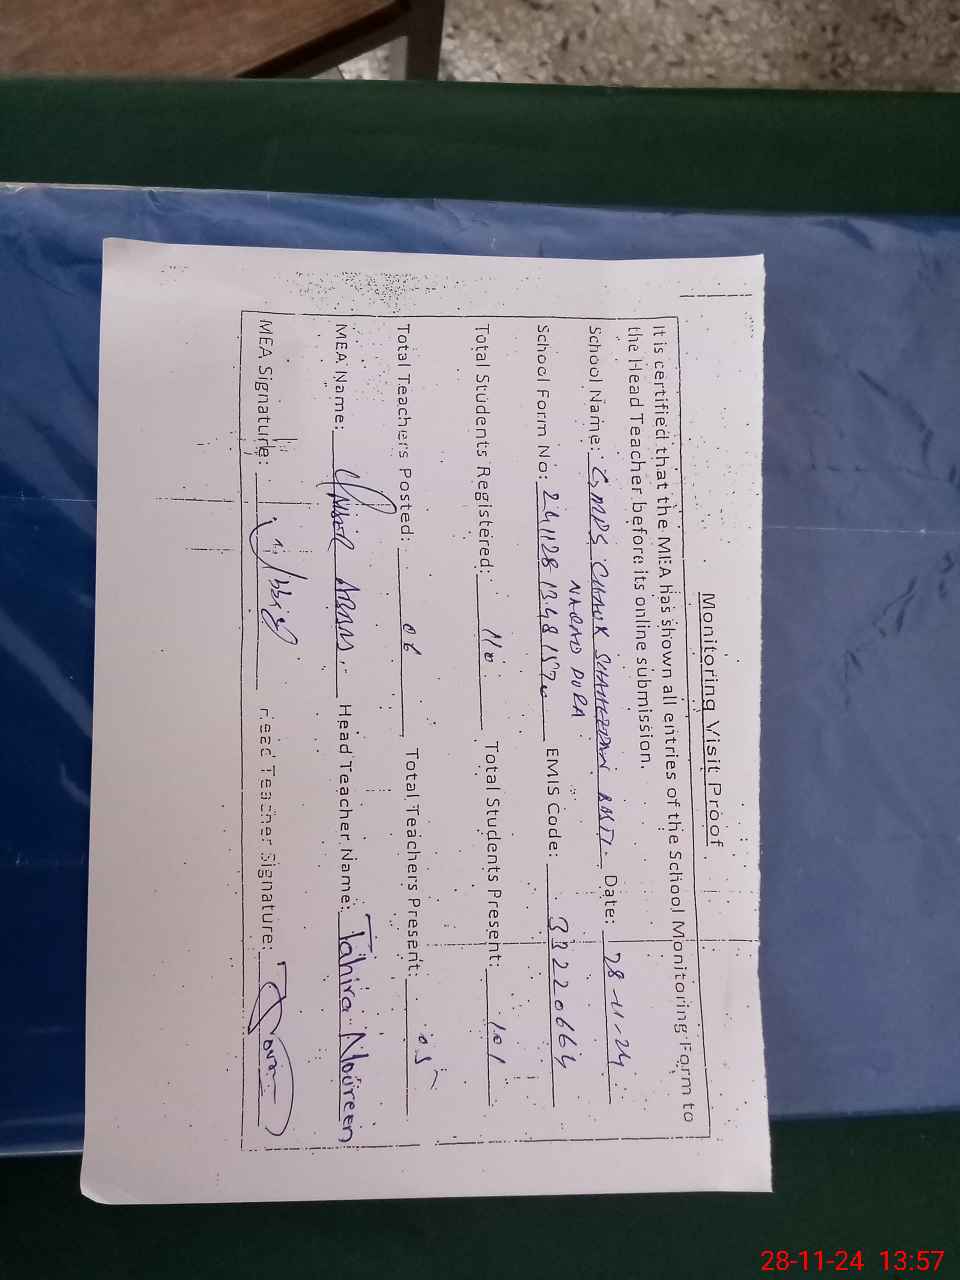 Monitoring Visit Proof
It is certified that the MEA has shown all entries of the School Monitoring Form to
the Head Teacher before its online submission.
School Name: GMPS CHAUK SHAHEEDAN BASTI. Date: 28-11-24
School Form No: EMIS Code: 33220664
Total Students Registered: 110 Total Students Present: 101
Total Teachers Posted: 06 Total Teachers Present: 05
MEA Name: Head Teacher Name: Tahira Noureen
MEA Signature: Head Teacher Signature:
28-11-24 13:57